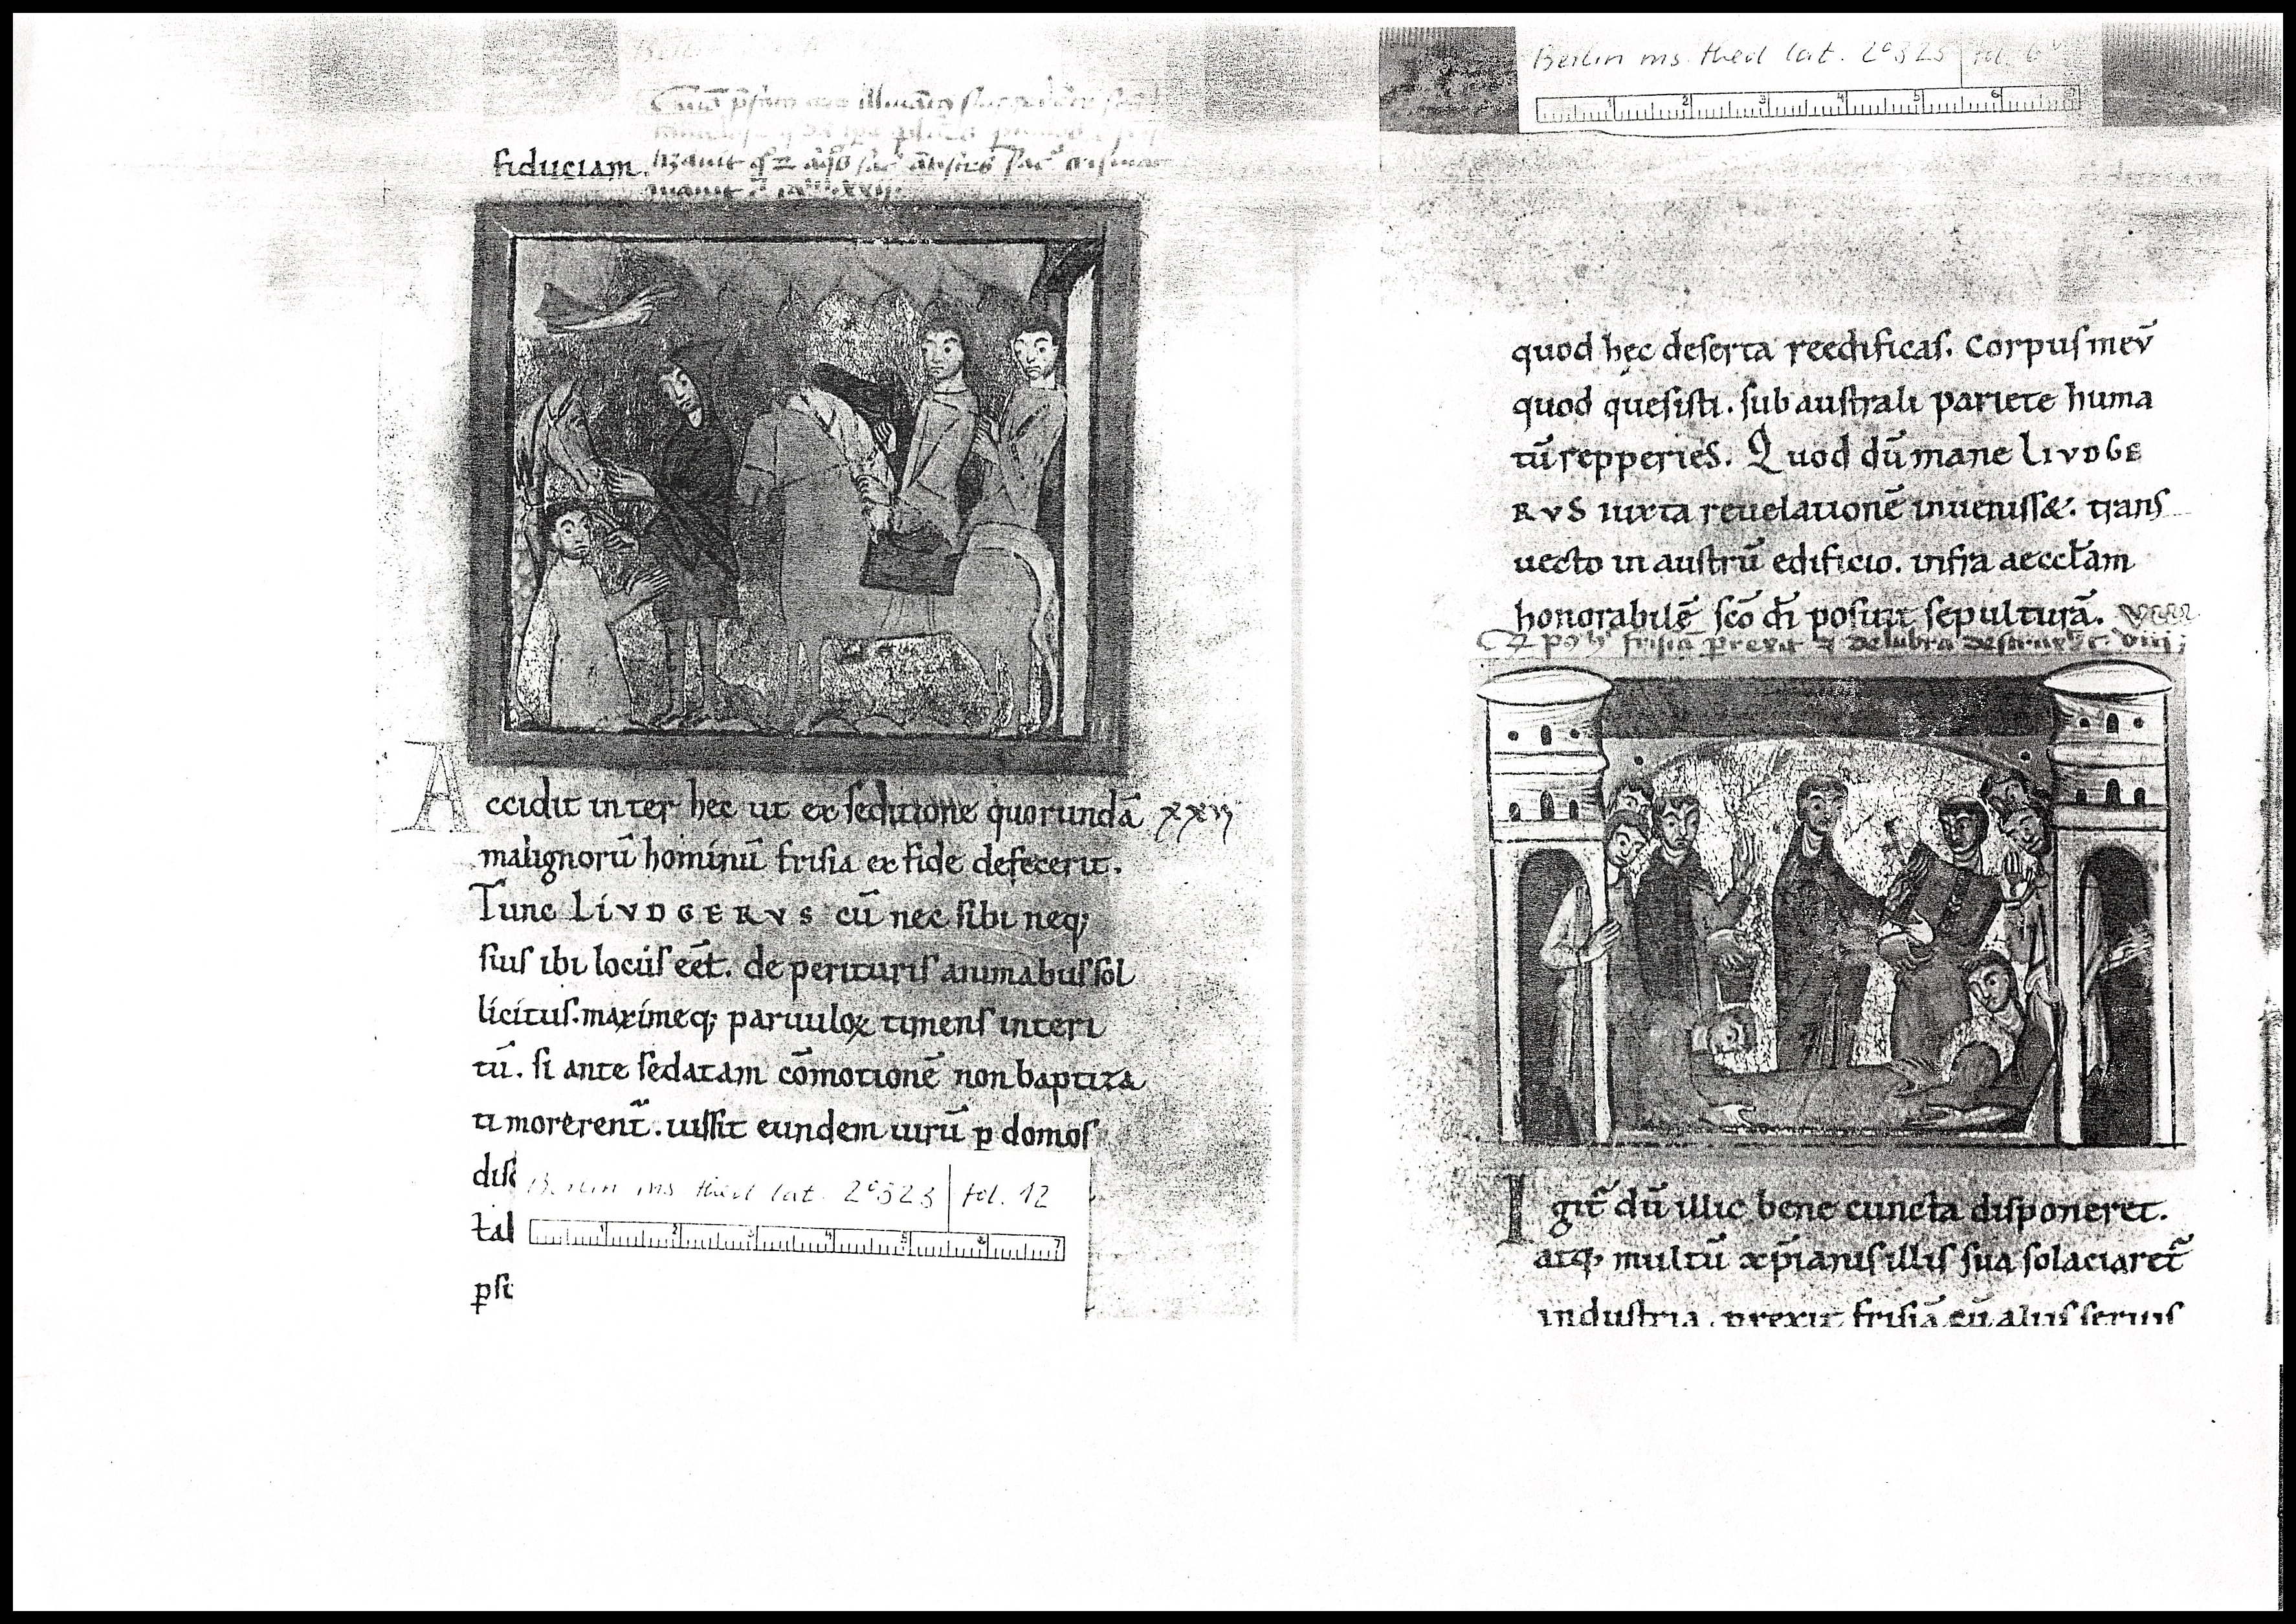 fiduciam.
A
ccidit inter hęc ut ex seditione quorundā xxvj
malignorū hominū frisia ex fide defecerit.
Tunc LIVDGERVS cū nec sibi neq;
suis ibi locus eēt. de perituris animabus sol
licitus. maximeq; paruuloꝝ timens interi
tū. si ante sedatam cōmotionē non baptiza
ti morerent̄. iussit eundem uirū ꝑ domos
dis
tal
ꝑsc
Berlin ms theol lat. 2° 323 fol. 12
1 2 3 4 5 6 7
Berlin ms. theol lat. 2° 323 fol. 6v
1 2 3 4 5 6 7
quod hęc deserta reedificas. Corpus meū
quod quęsisti. sub australi pariete huma
tū repperies. Quod dū mane LIVDGE
RVS iuxta reuelationē inuenisset. trans
uecto in austrū edificio. infra aeccłam
honorabilē sc̄o dī posuit sepulturā.
frisiā ꝑrexit delubra viij
I
git̄ dū illic bene cuncta disponeret.
atq; multū xp̄ianis illis sua solaciaret̄
industria. ꝑrexit frisiā cū aliis seruis